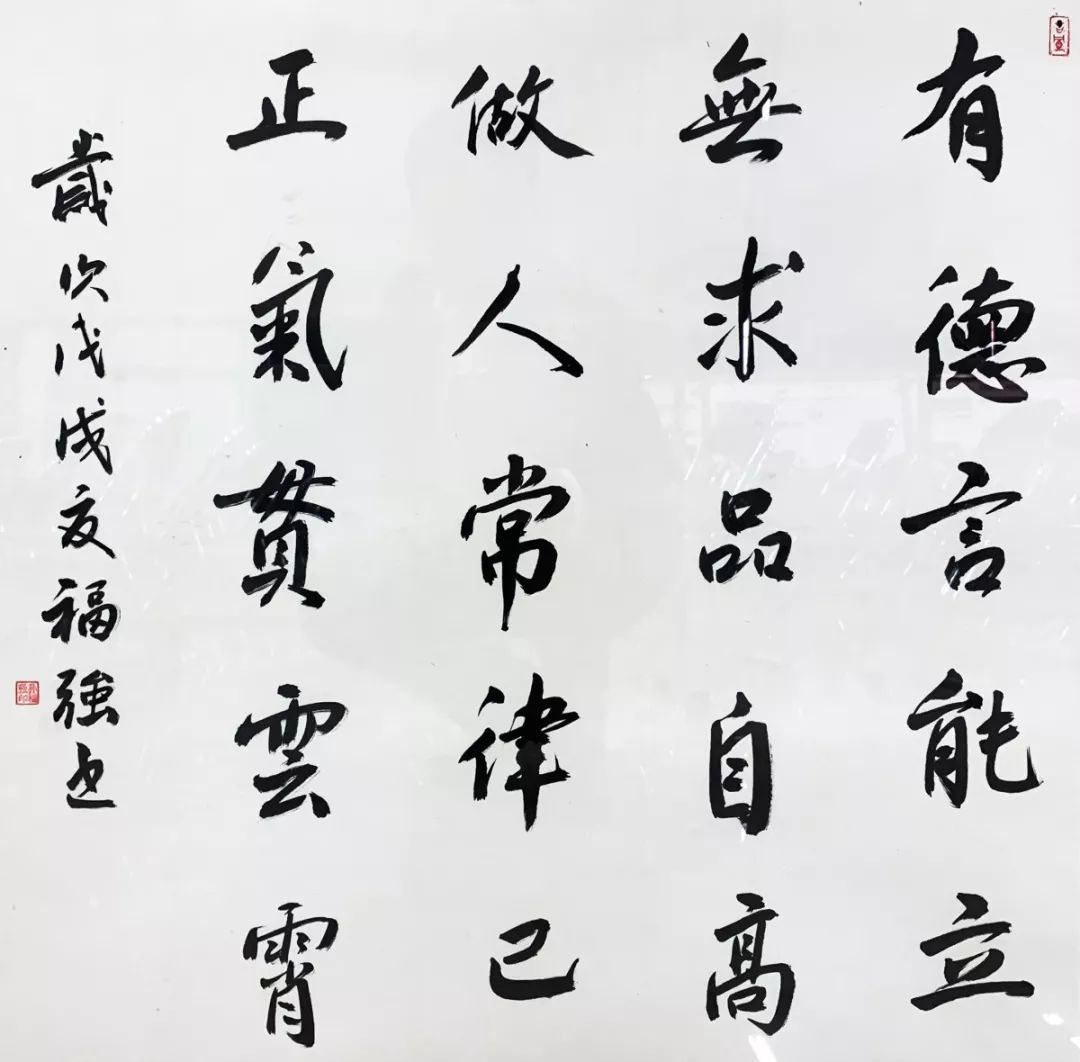 有德言能立
無求品自高
做人常律己
正氣貫雲霄
歲次戊戌夏福強書